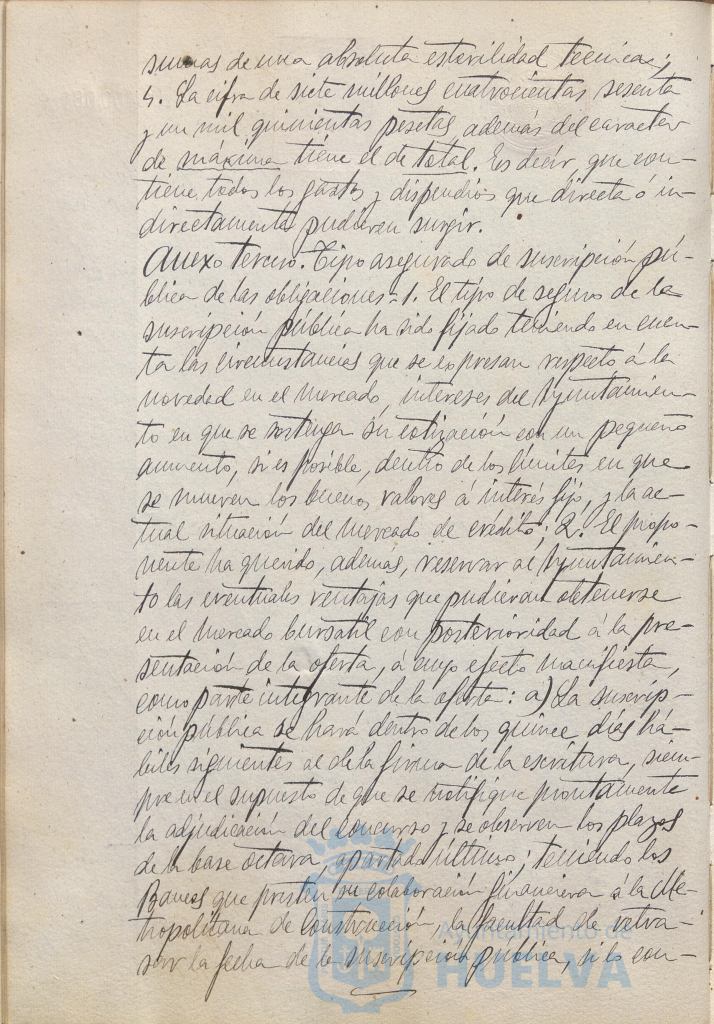 sumas de una absoluta esterilidad tecnica;
5. La cifra de siete millones cuatrocientas sesenta
y un mil quinientas pesetas, además del caracter
de máxima tiene el de total. Es decir, que con-
tiene todos los gastos y dispendios que directa ó in-
directamente pudieran surgir.
Anexo tercero. Tipo asegurado de suscripción pú-
blica de las obligaciones = 1. El tipo de seguro de la
suscripción pública ha sido fijado teniendo en cuen-
ta las circunstancias que se expresan respecto á la
novedad en el mercado, intereses del Ayuntamien-
to en que se sostenga su cotización con un pequeño
aumento, si es posible, dentro de los límites en que
se mueven los buenos valores á interés fijo, y la ac-
tual situación del mercado de crédito; 2. El propo-
nente ha querido, además, reservar al Ayuntamien-
to las eventuales ventajas que pudieran obtenerse
en el mercado bursatil con posterioridad á la pre-
sentación de la oferta, á cuyo efecto manifiesta,
como parte integrante de la oferta: a) La suscrip-
ción pública se hará dentro de los quince dias há-
biles siguientes al de la firma de la escritura, siem-
pre en el supuesto de que se notifique prontamente
la adjudicación del concurso y se observen los plazos
de la base octava, apartado último; teniendo los
Bancos que presten su colaboración financiera á la Me-
tropolitana de Construcción, la facultad de retra-
sar la fecha de la suscripción pública, si lo con-
Ayuntamiento de
HUELVA